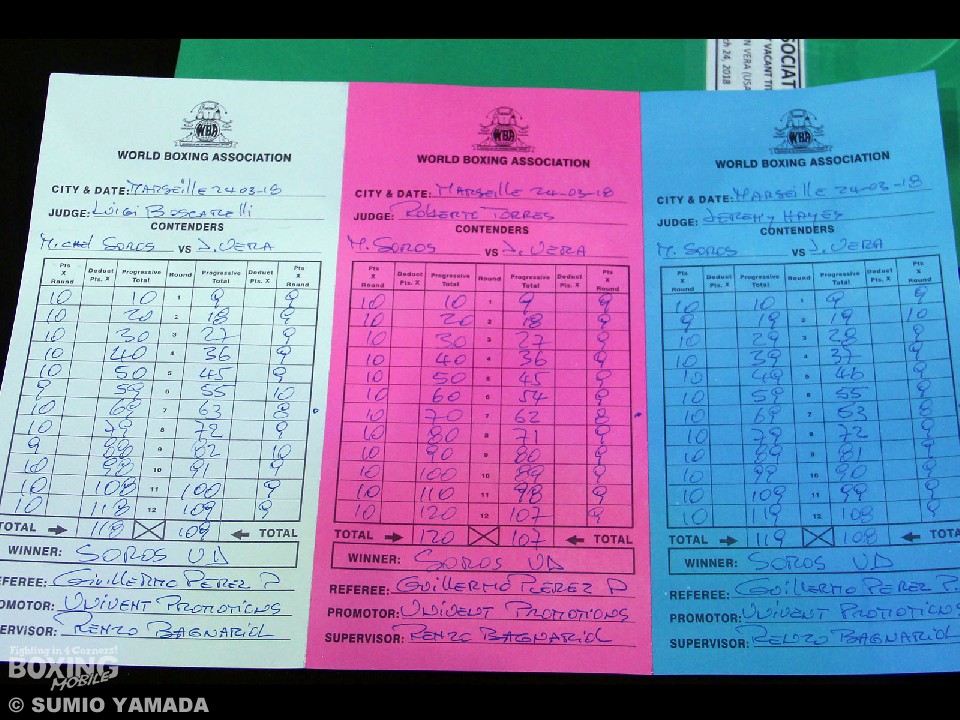 SOCIAT
VACANT TI
N VERA (USA
ch 24, 2018
WBA
WORLD BOXING ASSOCIATION
CITY & DATE: MARSEILLE 24-03-18
JUDGE: LUIGI BOSCARELLI
CONTENDERS
MICHEL SOROS VS J. VERA
Pts X Round Deduct Pts. X Progressive Total Round Progressive Total Deduct Pts. X Pts X Round
10 10 1 9 9
10 20 2 18 9
10 30 3 27 9
10 40 4 36 9
10 50 5 45 9
9 59 6 55 10
10 69 7 63 8
10 79 8 72 9
9 88 9 82 10
10 98 10 91 9
10 108 11 100 9
10 118 12 109 9
TOTAL 118 109 TOTAL
WINNER: SOROS UD
REFEREE: GUILLERMO PEREZ P
OMOTOR: UNIVENT PROMOTIONS
ERVISOR: RENZO BAGNARIOL
WBA
WORLD BOXING ASSOCIATION
CITY & DATE: MARSEILLE 24-03-18
JUDGE: ROBERTO TORRES
CONTENDERS
M. SOROS VS J. VERA
Pts X Round Deduct Pts. X Progressive Total Round Progressive Total Deduct Pts. X Pts X Round
10 10 1 9 9
10 20 2 18 9
10 30 3 27 9
10 40 4 36 9
10 50 5 45 9
10 60 6 54 9
10 70 7 62 8
10 80 8 71 9
10 90 9 80 9
10 100 10 89 9
10 110 11 98 9
10 120 12 107 9
TOTAL 120 107 TOTAL
WINNER: SOROS UD
REFEREE: GUILLERMO PEREZ P
PROMOTOR: UNIVENT PROMOTIONS
SUPERVISOR: RENZO BAGNARIOL
WBA
WORLD BOXING ASSOCIATION
CITY & DATE: MARSEILLE 24-03-18
JUDGE: JEREMY HAYES
CONTENDERS
M. SOROS VS J. VERA
Pts X Round Deduct Pts. X Progressive Total Round Progressive Total Deduct Pts. X Pts X Round
10 10 1 9 9
9 19 2 19 10
10 29 3 28 9
10 39 4 37 9
10 49 5 46 9
10 59 6 55 9
10 69 7 63 8
10 79 8 72 9
10 89 9 81 9
10 99 10 90 9
10 109 11 99 9
10 119 12 108 9
TOTAL 119 108 TOTA
WINNER: SOROS UD
REFEREE: GUILLERMO PEREZ P.
PROMOTOR: UNIVENT PROMOTIONS
SUPERVISOR: RENZO BAGNARIOL
Fighting in 4 Corners!
BOXING
MOBILE
© SUMIO YAMADA